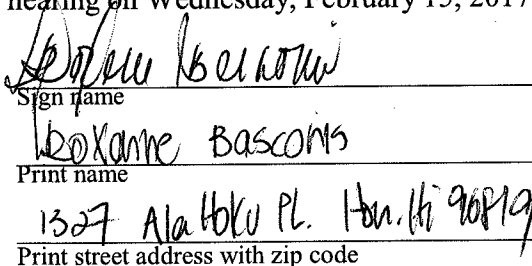 hearing on Wednesday, February 15, 2017
Sign name
Roxanne Bascoms
Print name
1327 Ala Hoku Pl. Hon. Hi 96819
Print street address with zip code